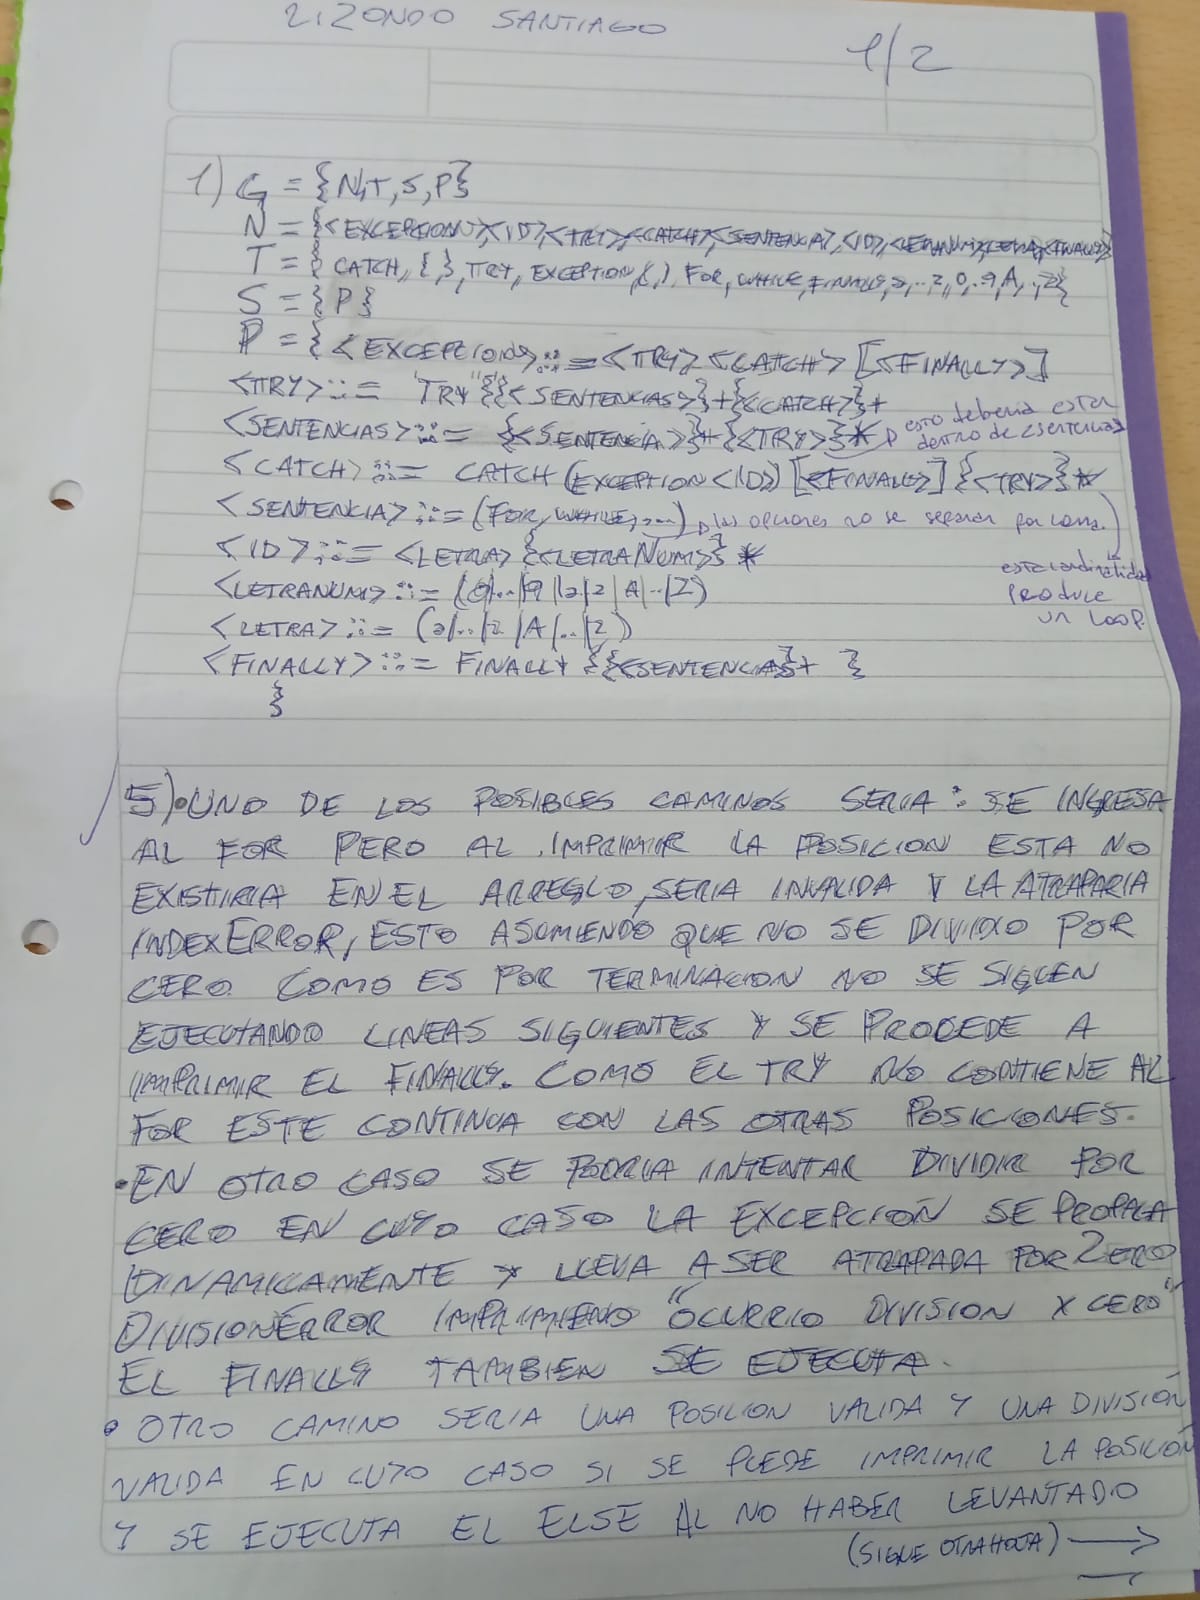 LIZONDO SANTIAGO
1/2
1) G = {N,T,S,P}
N = {<EXCEPCION>,<ID>,<TRY>,<CATCH>,<SENTENCIA>,<ID>,<LETRANUM>,<LETRA>,<FINALLY>}
T = { CATCH, {, }, TRY, EXCEPTION, (, ), FOR, WHILE, FINALLY, a, .. z, 0, .. 9, A, .., Z}
S = {P}
P = { <EXCEPTION> ::= <TRY> <CATCH> [<FINALLY>]
<TRY> ::= "TRY" {{<SENTENCIAS>}+{<CATCH>}+
<SENTENCIAS> ::= {<SENTENCIA>}+ {<TRY>}* esto debería estar
dentro de <sentencia>
<CATCH> ::= CATCH (EXCEPTION <ID>) [<FINALLY>] {<TRY>}*
<SENTENCIA> ::= (FOR, WHILE, ...) las opciones no se separan por coma.
<ID> ::= <LETRA> {<LETRANUM>}*
esta cardinalidad
<LETRANUM> ::= (0|..|9|a|z|A|..|Z)
produce
un loop.
<LETRA> ::= (a|..|z|A|..|Z)
<FINALLY> ::= FINALLY {{<SENTENCIA>}+ }
}
5) • UNO DE LOS POSIBLES CAMINOS SERIA: SE INGRESA
AL FOR PERO AL IMPRIMIR LA POSICION ESTA NO
EXISTIRIA EN EL ARREGLO, SERIA INVALIDA Y LA ATRAPARIA
INDEXERROR, ESTO ASUMIENDO QUE NO SE DIVIDIO POR
CERO. COMO ES POR TERMINACION NO SE SIGUEN
EJECUTANDO LINEAS SIGUIENTES Y SE PROCEDE A
IMPRIMIR EL FINALLY. COMO EL TRY NO CONTIENE AL
FOR ESTE CONTINUA CON LAS OTRAS POSICIONES.
• EN OTRO CASO SE PODRIA INTENTAR DIVIDIR POR
CERO EN CUYO CASO LA EXCEPCIÓN SE PROPAGA
DINAMICAMENTE Y LLEGA A SER ATRAPADA POR ZERO
DIVISIONERROR IMPRIMIENDO "OCURRIO DIVISION X CERO"
EL FINALLY TAMBIEN SE EJECUTA.
• OTRO CAMINO SERIA UNA POSICION VALIDA Y UNA DIVISIÓN
VALIDA EN CUYO CASO SI SE PUEDE IMPRIMIR LA POSICIÓN
Y SE EJECUTA EL ELSE AL NO HABER LEVANTADO
(SIGUE OTRA HOJA) →